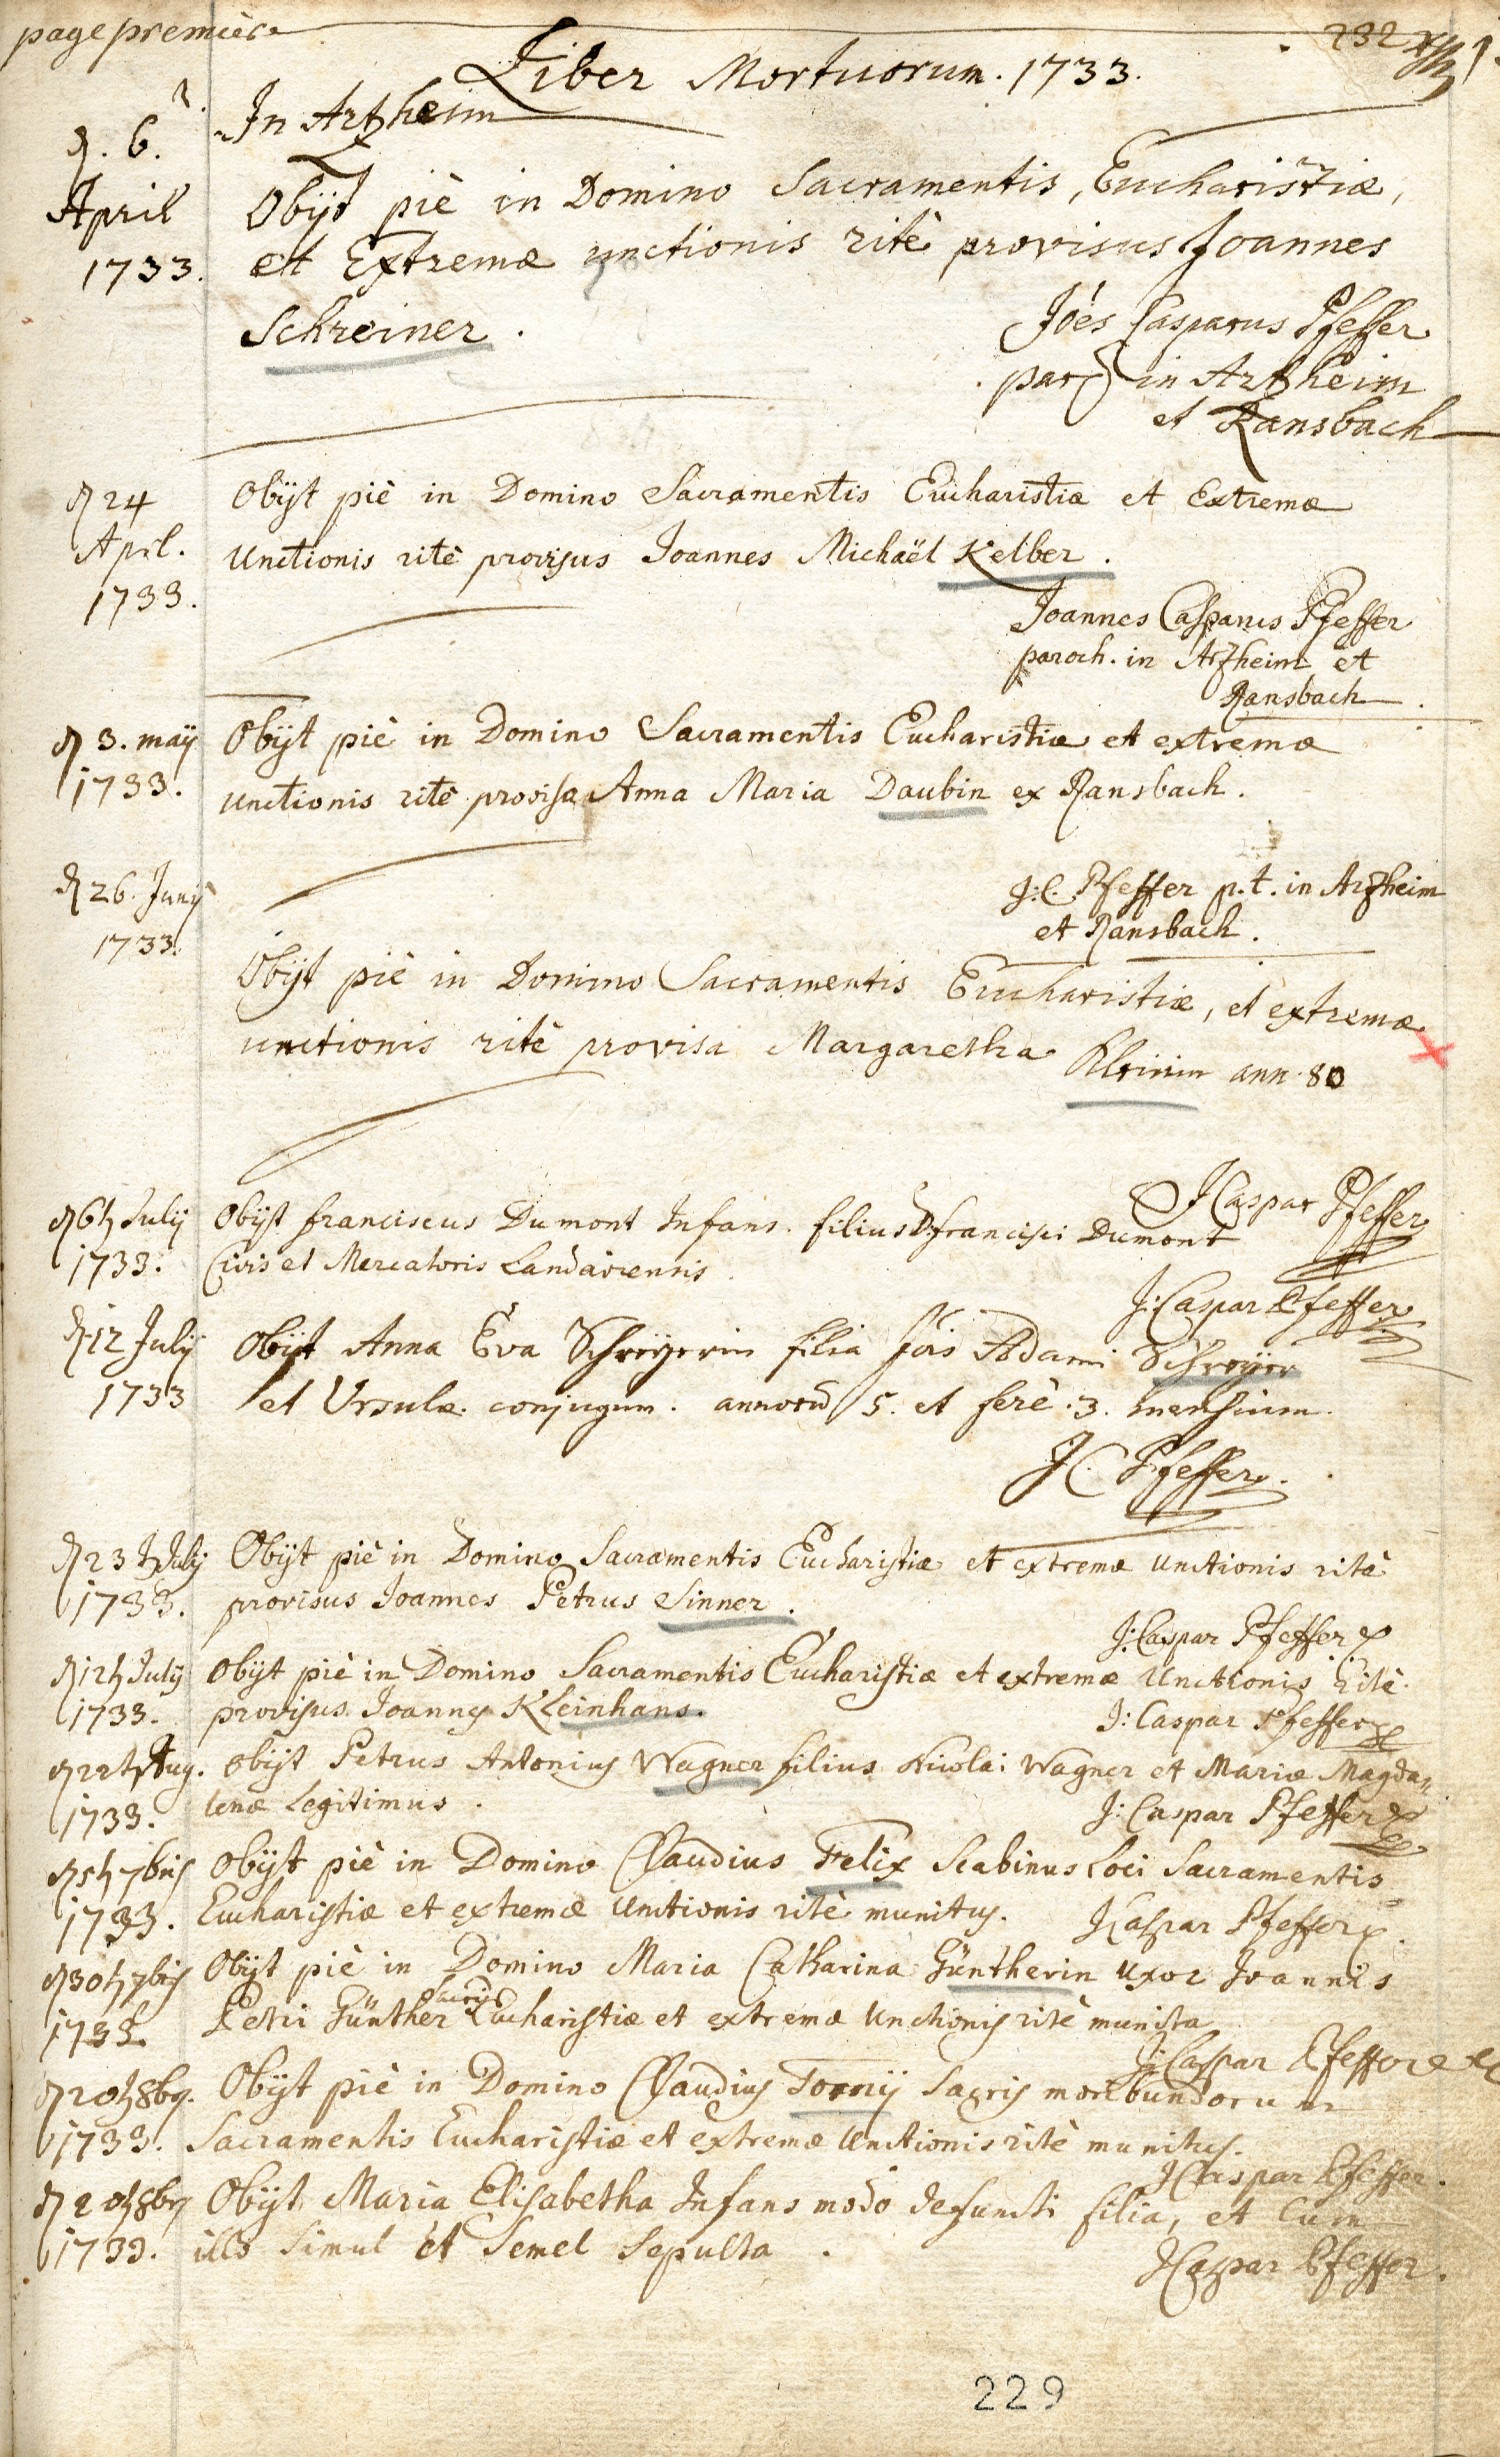 page première
232
1.
Liber Mortuorum. 1733.
In Artzheim
d. 6.
April
1733.
Obijt piè in Domino Sacramentis, Eucharistiæ,
et Extremæ unctionis ritè provisus Joannes
Schreiner.
Jōes Casparus Pfeffer
par. in Artzheim
et Ransbach
d 24
April.
1733.
Obijt piè in Domino Sacramentis Eucharistiæ et Extremæ
Unctionis ritè provisus Joannes Michaël Kelber.
Joannes Casparus Pfeffer
paroch. in Arzheim et
Ransbach.
d 3. maij
1733.
Obijt piè in Domino Sacramentis Eucharistiæ et extremæ
unctionis ritè provisa Anna Maria Daubin ex Ransbach.
J. C. Pfeffer p. t. in Arzheim
et Ransbach.
d 26. Junij
1733.
Obijt piè in Domino Sacramentis Eucharistiæ, et extremæ
unctionis ritè provisa Margaretha Kleinin ann. 80
J Caspar Pfeffer
d 6t July
1733.
Obijt franciscus Dumont Infans. filius D. francisci Dumont
Civis et Mercatoris Landaviensis.
J: Caspar Pfeffer
d 12 July
1733
Obijt Anna Eva Schreÿerin filia Jōis Adami Schreÿer
et Ursulæ conjugum. annorū 5. et ferè .3. mensium.
J C Pfeffer.
d 23t July
1733.
Obijt piè in Domino Sacramentis Eucharistiæ et extremæ Unctionis ritè
provisus Joannes Petrus Sinner.
J: Caspar Pfeffer
d 12t July
1733.
Obijt piè in Domino Sacramentis Eucharistiæ et extremæ Unctionis ritè
provisus Joannes Kleinhans.
J: Caspar Pfeffer
d 22t Aug.
1733.
obijt Petrus Antonius Wagner filius Nicolai Wagner et Mariæ Magda=
lenæ Legitimus.
J: Caspar Pfeffer
d 5t 7bris
1733.
Obijt piè in Domino Claudius Felix Scabinus Loci Sacramentis
Eucharistiæ et extremæ Unctionis ritè munitus.
J Caspar Pfeffer
d 30t 7bris
1733.
Obijt piè in Domino Maria Catharina Güntherin Uxor Joannis
Petri Günther sacris Eucharistiæ et extremæ Unctionis ritè munita
J: Caspar Pfeffer
d 20t 8br.
1733.
Obijt piè in Domino Claudius Tornij Sacris moribundorum
Sacramentis Eucharistiæ et extremæ Unctionis ritè munitus.
J Caspar Pfeffer.
d 20t 8br
1733.
Obijt Maria Elisabetha Infans modo defuncti filia, et cum
illo simul et semel sepulta.
J Caspar Pfeffer.
229